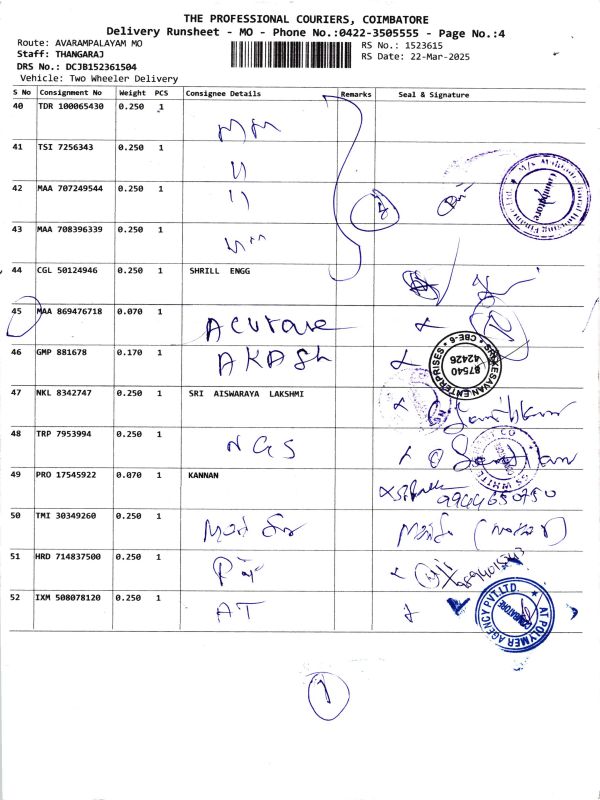 THE PROFESSIONAL COURIERS, COIMBATORE
Delivery Runsheet - MO - Phone No.:0422-3505555 - Page No.:4
Route: AVARAMPALAYAM MO
Staff: THANGARAJ
DRS No.: DCJB152361504
Vehicle: Two Wheeler Delivery
RS No.: 1523615
RS Date: 22-Mar-2025
S No Consignment No Weight PCS Consignee Details Remarks Seal & Signature
40 TDR 100065430 0.250 1
41 TSI 7256343 0.250 1
42 MAA 707249544 0.250 1
43 MAA 708396339 0.250 1
44 CGL 50124946 0.250 1 SHRILL ENGG
45 MAA 869476718 0.070 1
46 GMP 881678 0.170 1 AKASH
SRI KESAVAN ENTERPRISES * CBE-6
87540
42426
47 NKL 8342747 0.250 1 SRI AISWARAYA LAKSHMI
48 TRP 7953994 0.250 1 NGS
49 PRO 17545922 0.070 1 KANNAN
9944650750
50 TMI 30349260 0.250 1
51 HRD 714837500 0.250 1
52 IXM 508078120 0.250 1 AT
AT POLYMER AGENCY PVT.LTD.
COIMBATORE
1